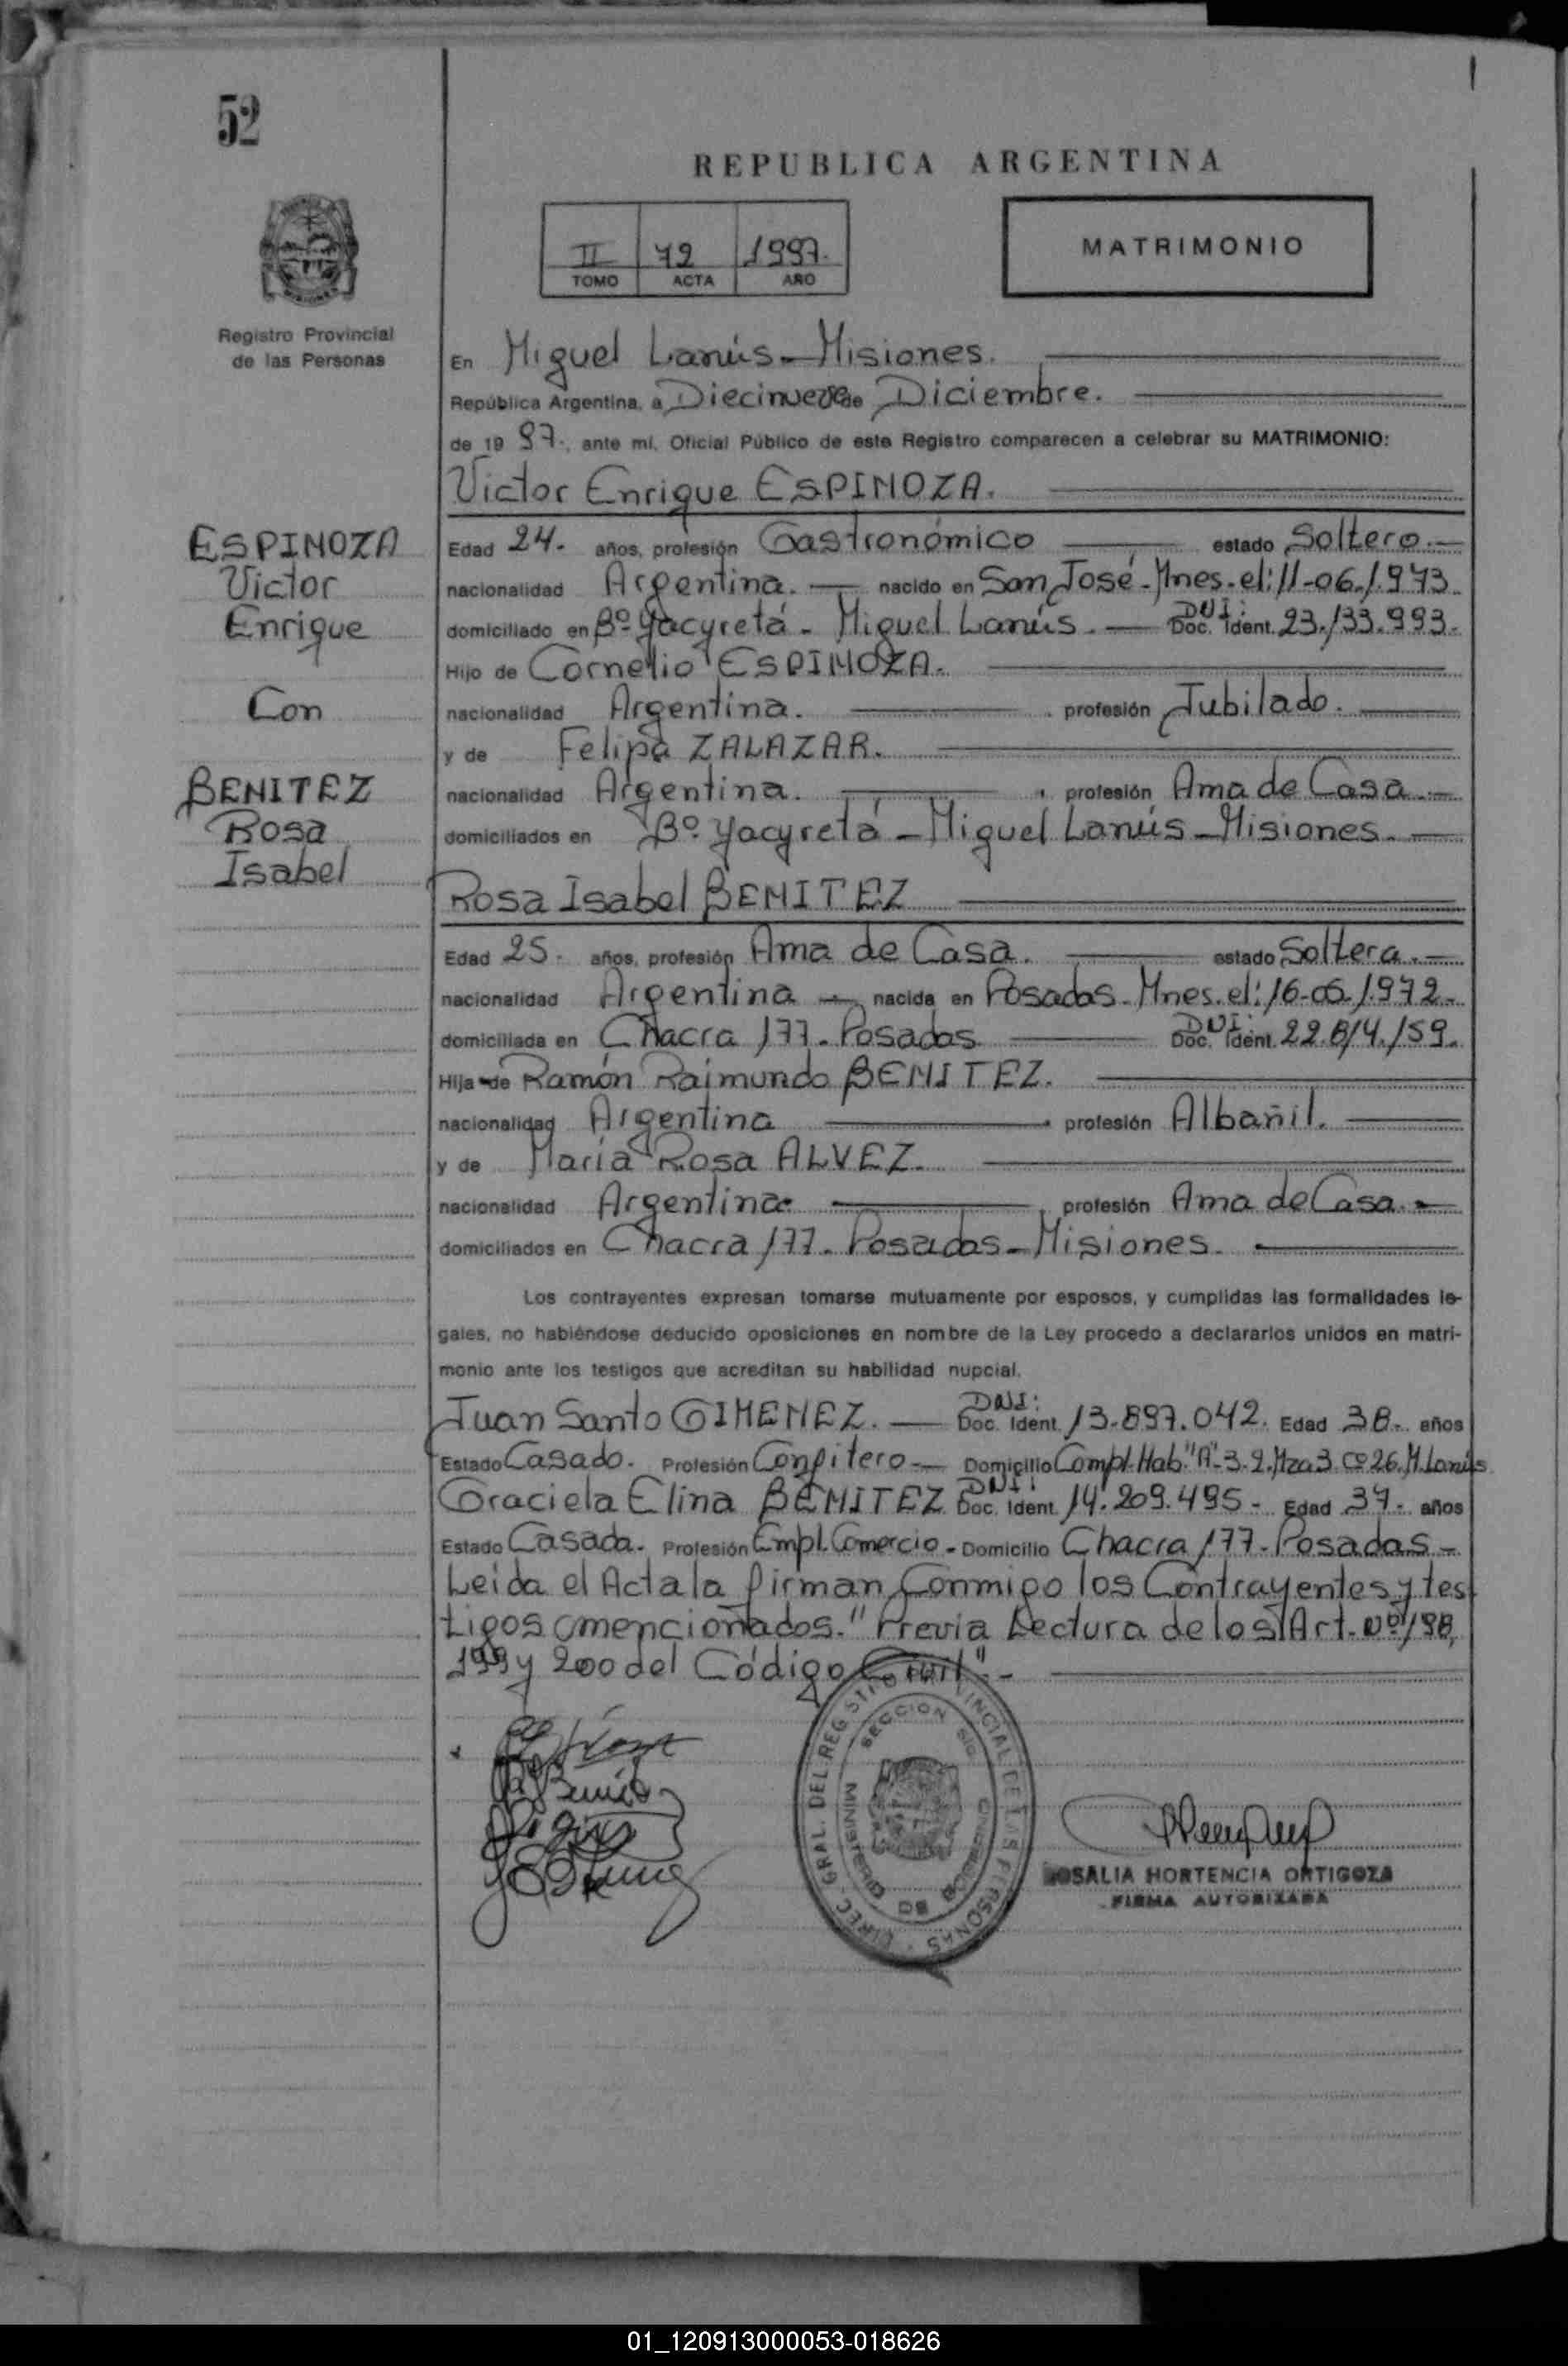 52
REPUBLICA ARGENTINA
II 72 1997.
TOMO ACTA AÑO
MATRIMONIO
Registro Provincial
de las Personas
En Miguel Lanús - Misiones.
República Argentina, a Diecinueve de Diciembre.
de 1997., ante mí, Oficial Público de este Registro comparecen a celebrar su MATRIMONIO:
Victor Enrique ESPINOZA.
ESPINOZA
Victor
Enrique
Con
BENITEZ
Rosa
Isabel
Edad 24. años, profesión Gastronómico estado Soltero.-
nacionalidad Argentina. nacido en San José - Mnes. el: 11-06-1.973
domiciliado en Bº Yacyretá - Miguel Lanús. - DNI: Doc. Ident. 23.133.993.
Hijo de Cornelio ESPINOZA.
nacionalidad Argentina. profesión Jubilado.
y de Felipa ZALAZAR.
nacionalidad Argentina. profesión Ama de Casa.-
domiciliados en Bº Yacyretá - Miguel Lanús - Misiones.
Rosa Isabel BENITEZ
Edad 25. años, profesión Ama de Casa. estado Soltera.-
nacionalidad Argentina - nacida en Posadas - Mnes. el: 16-05-1.972-
domiciliada en Chacra 177 - Posadas DNI: Doc. Ident. 22.814.159.
Hija de Ramón Raimundo BENITEZ.
nacionalidad Argentina profesión Albañil.
y de María Rosa ALVEZ.
nacionalidad Argentina profesión Ama de Casa.-
domiciliados en Chacra 177 - Posadas - Misiones.
Los contrayentes expresan tomarse mutuamente por esposos, y cumplidas las formalidades le-
gales, no habiéndose deducido oposiciones en nombre de la Ley procedo a declararlos unidos en matri-
monio ante los testigos que acreditan su habilidad nupcial.
Juan Santo GIMENEZ. - DNI: Doc. Ident. 13.897.042. Edad 38. años
Estado Casado. Profesión Confitero - Domicilio Compl. Hab. "A"-3.2. Mza 3 Cº 26. M. Lanús
Graciela Elina BENITEZ DNI: Doc. Ident. 14.209.495 - Edad 37. años
Estado Casada. Profesión Empl. Comercio - Domicilio Chacra 177 - Posadas -
Leída el Acta la firman Conmigo los Contrayentes y tes
tigos mencionados. "Previa Lectura de los Art. Nº 198,
199 y 200 del Código Civil" -
DIREC. GRAL. DEL REGISTRO PROVINCIAL DE LAS PERSONAS
SECCION
MINISTERIO DE GOBIERNO
ROSALIA HORTENCIA ORTIGOZA
FIRMA AUTORIZADA
01_120913000053-018626